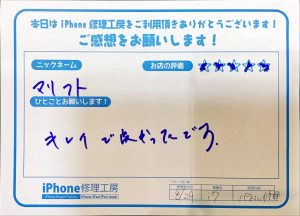 本日は iPhone 修理工房をご利用頂きありがとうございます！
ご感想をお願いします！
ニックネーム
お店の評価
マリフト
ひとことお願いします！
キレイで良かったでる。
iPhone修理工房
修理受付日
機種
修理内容
5/29
i7